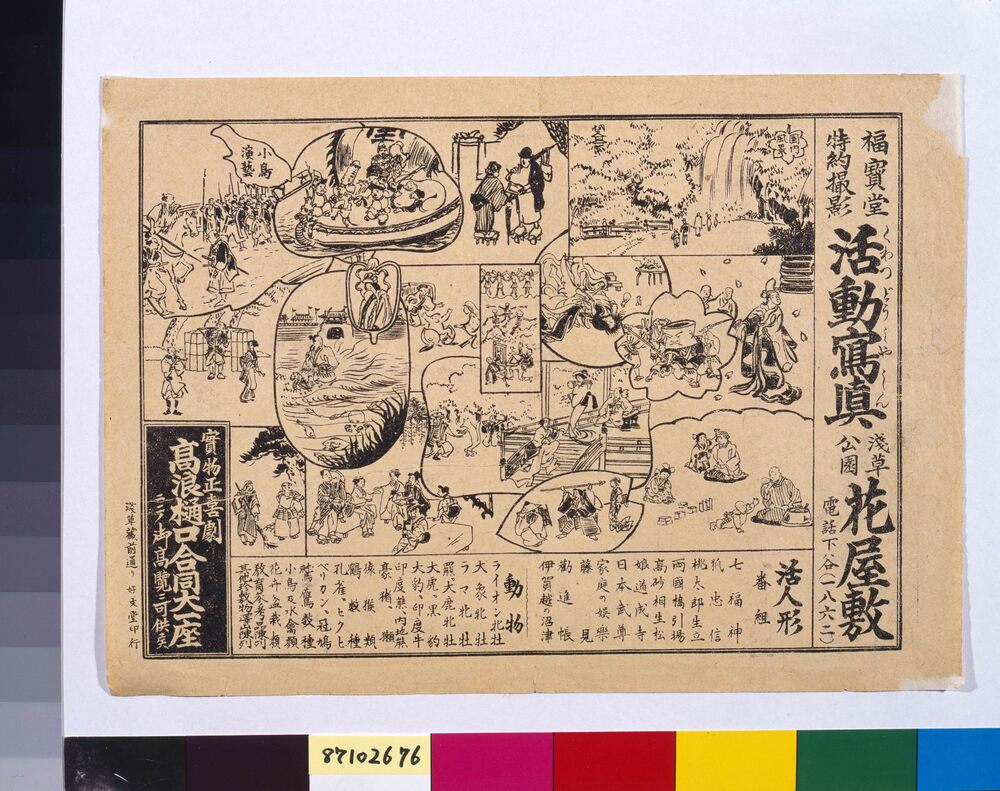 福寶堂
特約撮影
活動寫眞
くわつどうしやしん
淺草
公園
花屋敷
電話下谷(一八六二)
園内
風景
小鳥
演藝
活人形
番組
七福神
狐忠信
桃太郎生立
両國橋引揚
高砂相生松
娘道成寺
日本武尊
家庭の娯樂
藤見
勸進帳
伊賀越の沼津
動物
ライオン北牡
大象北牡
ラマ北牡
羆大鹿北牡
大虎、黒豹
大豹、印度牛
印度熊、内地熊
豪猪、獺
猿猴類
鶴数種
孔雀、ヒクヒ
ペリカン、冠鳩
鷲、鷹数種
小鳥及水禽類
花卉盆栽類
教育参考品陳列
其他珍数物澤陳列
實物正喜劇
髙浪樋口合同大一座
ニテ御高覧ニ可供候
淺草藏前通り 好文堂印行
87102676